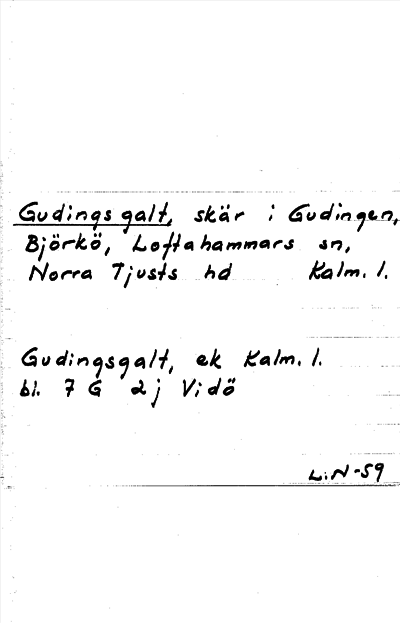 Gudingsgalt, skär i Gudingen,
Björkö, Loftahammars sn,
Norra Tjusts hd Kalm. l.
Gudingsgalt, ek Kalm. l.
bl. 7 G 2 j Vidö
L:N-59